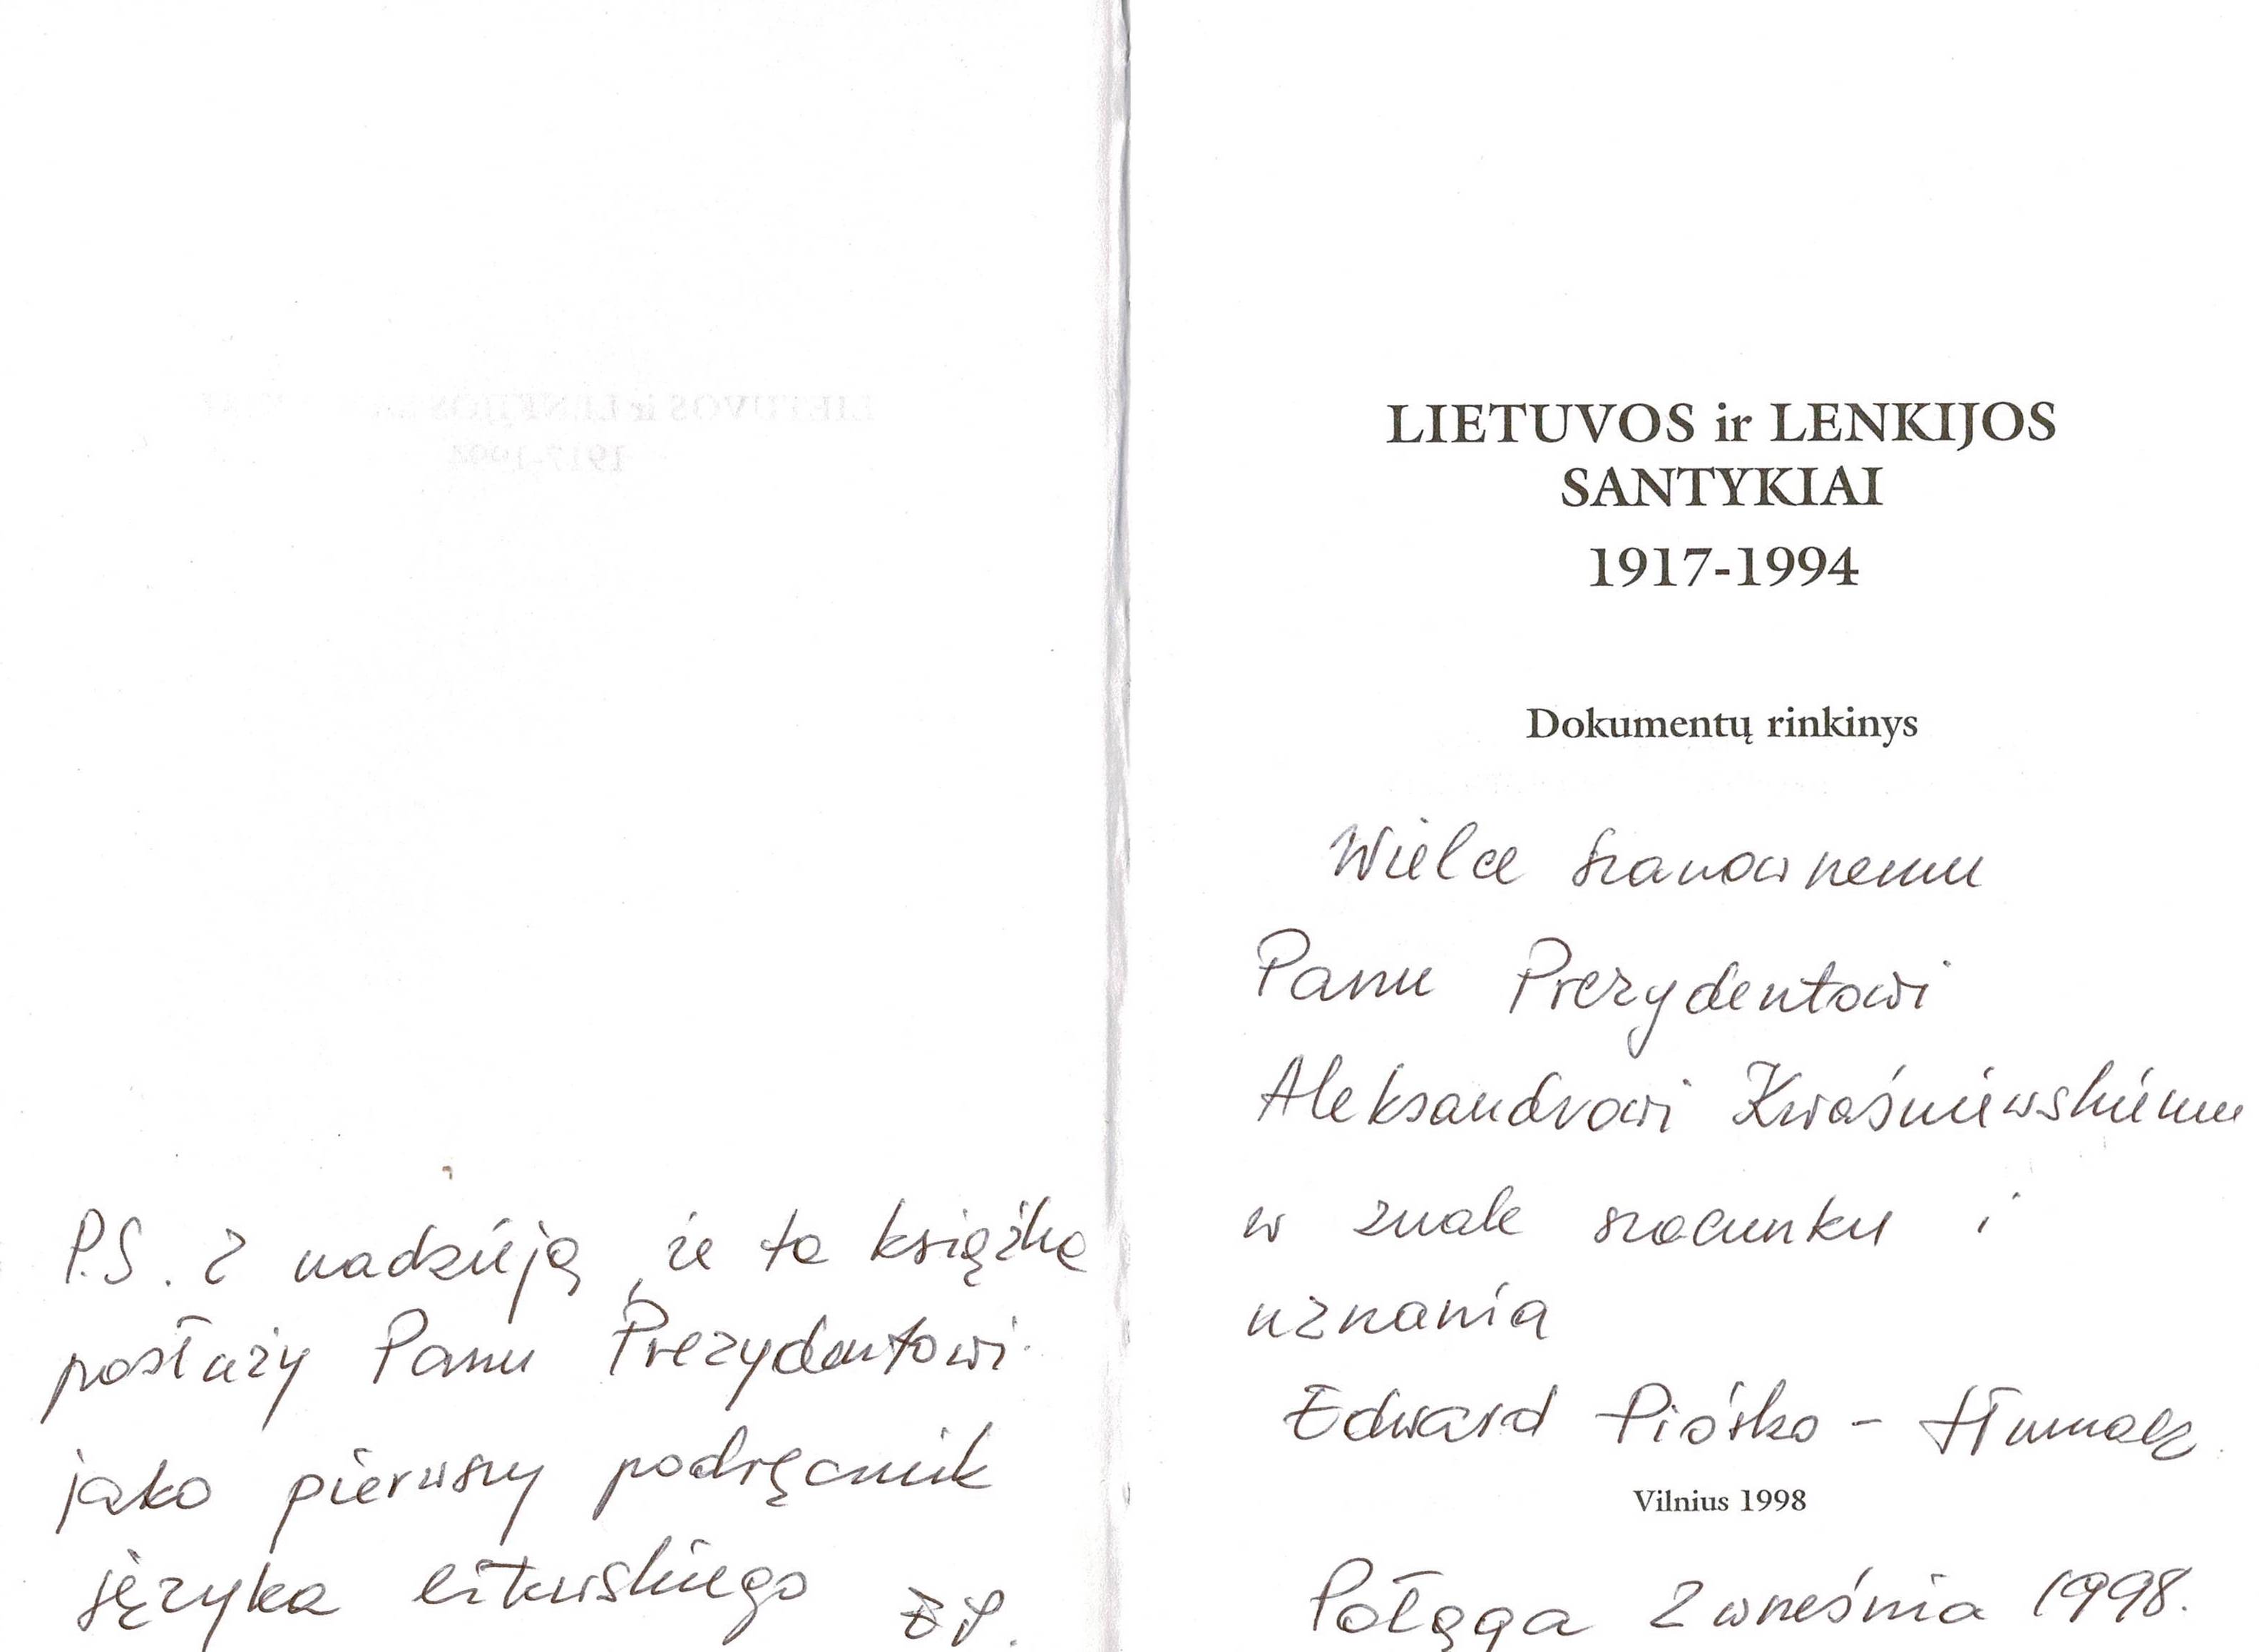 P.S. z nadzieją, że ta książka
posłuży Panu Prezydentowi
jako pierwszy podręcznik
języka litewskiego E.P.
LIETUVOS ir LENKIJOS
SANTYKIAI
1917-1994
Dokumentų rinkinys
Wielce szanownemu
Panu Prezydentowi
Aleksandrowi Kwaśniewskiemu
w znak szacunku i
uznania
Edward Piórko - tłumacz
Vilnius 1998
Połąga 2 września 1998.